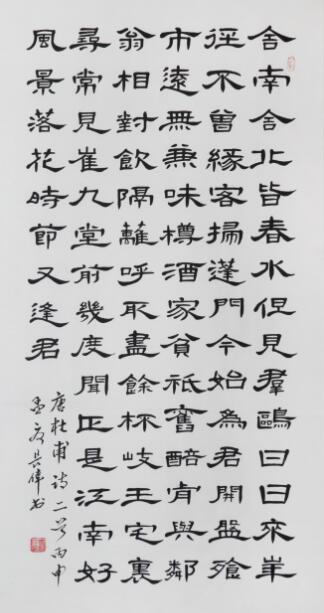 舍南舍北皆春水但見羣鷗日日來花
徑不曾緣客掃蓬門今始為君開盤飧
市遠無兼味樽酒家貧祗舊醅肯與鄰
翁相對飲隔籬呼取盡餘杯岐王宅裏
尋常見崔九堂前幾度聞正是江南好
風景落花時節又逢君
唐杜甫詩二首丙申
孟夏吳偉书